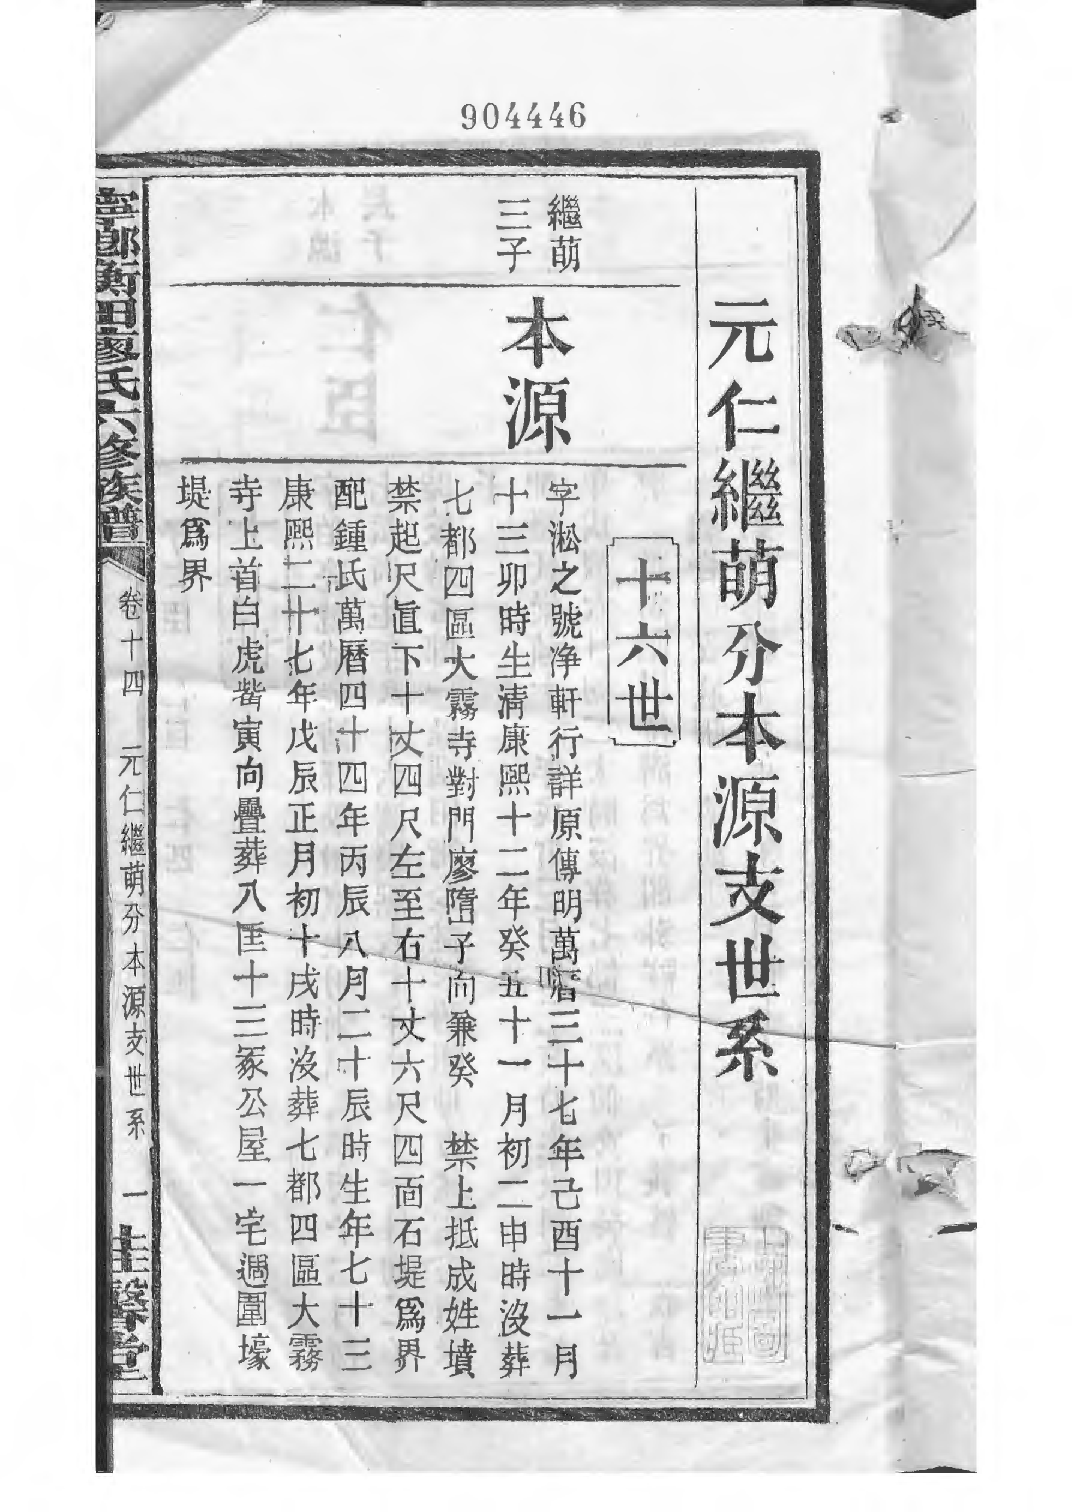 904446
元仁繼萌分本源支世系
十六世
繼萌
三子
本源
字淞之號净軒行詳原傳明萬曆三十七年己酉十一月
十三卯時生清康熙十二年癸丑十一月初二申時沒葬
七都四區大霧寺對門廖隋山子向兼癸 禁上抵成姓墳
禁起尺直下十丈四尺左至右十丈六尺四面石堤爲界
配鍾氏萬曆四十四年丙辰八月二十辰時生年七十三
康熙二十七年戊辰正月初十戌時沒葬七都四區大霧
寺上首白虎嘴寅向疊葬八匡十三冢公屋一宅週圍壕
堤爲界
寧鄉衡田廖氏六修族譜
卷十四
元仁繼萌分本源支世系
一